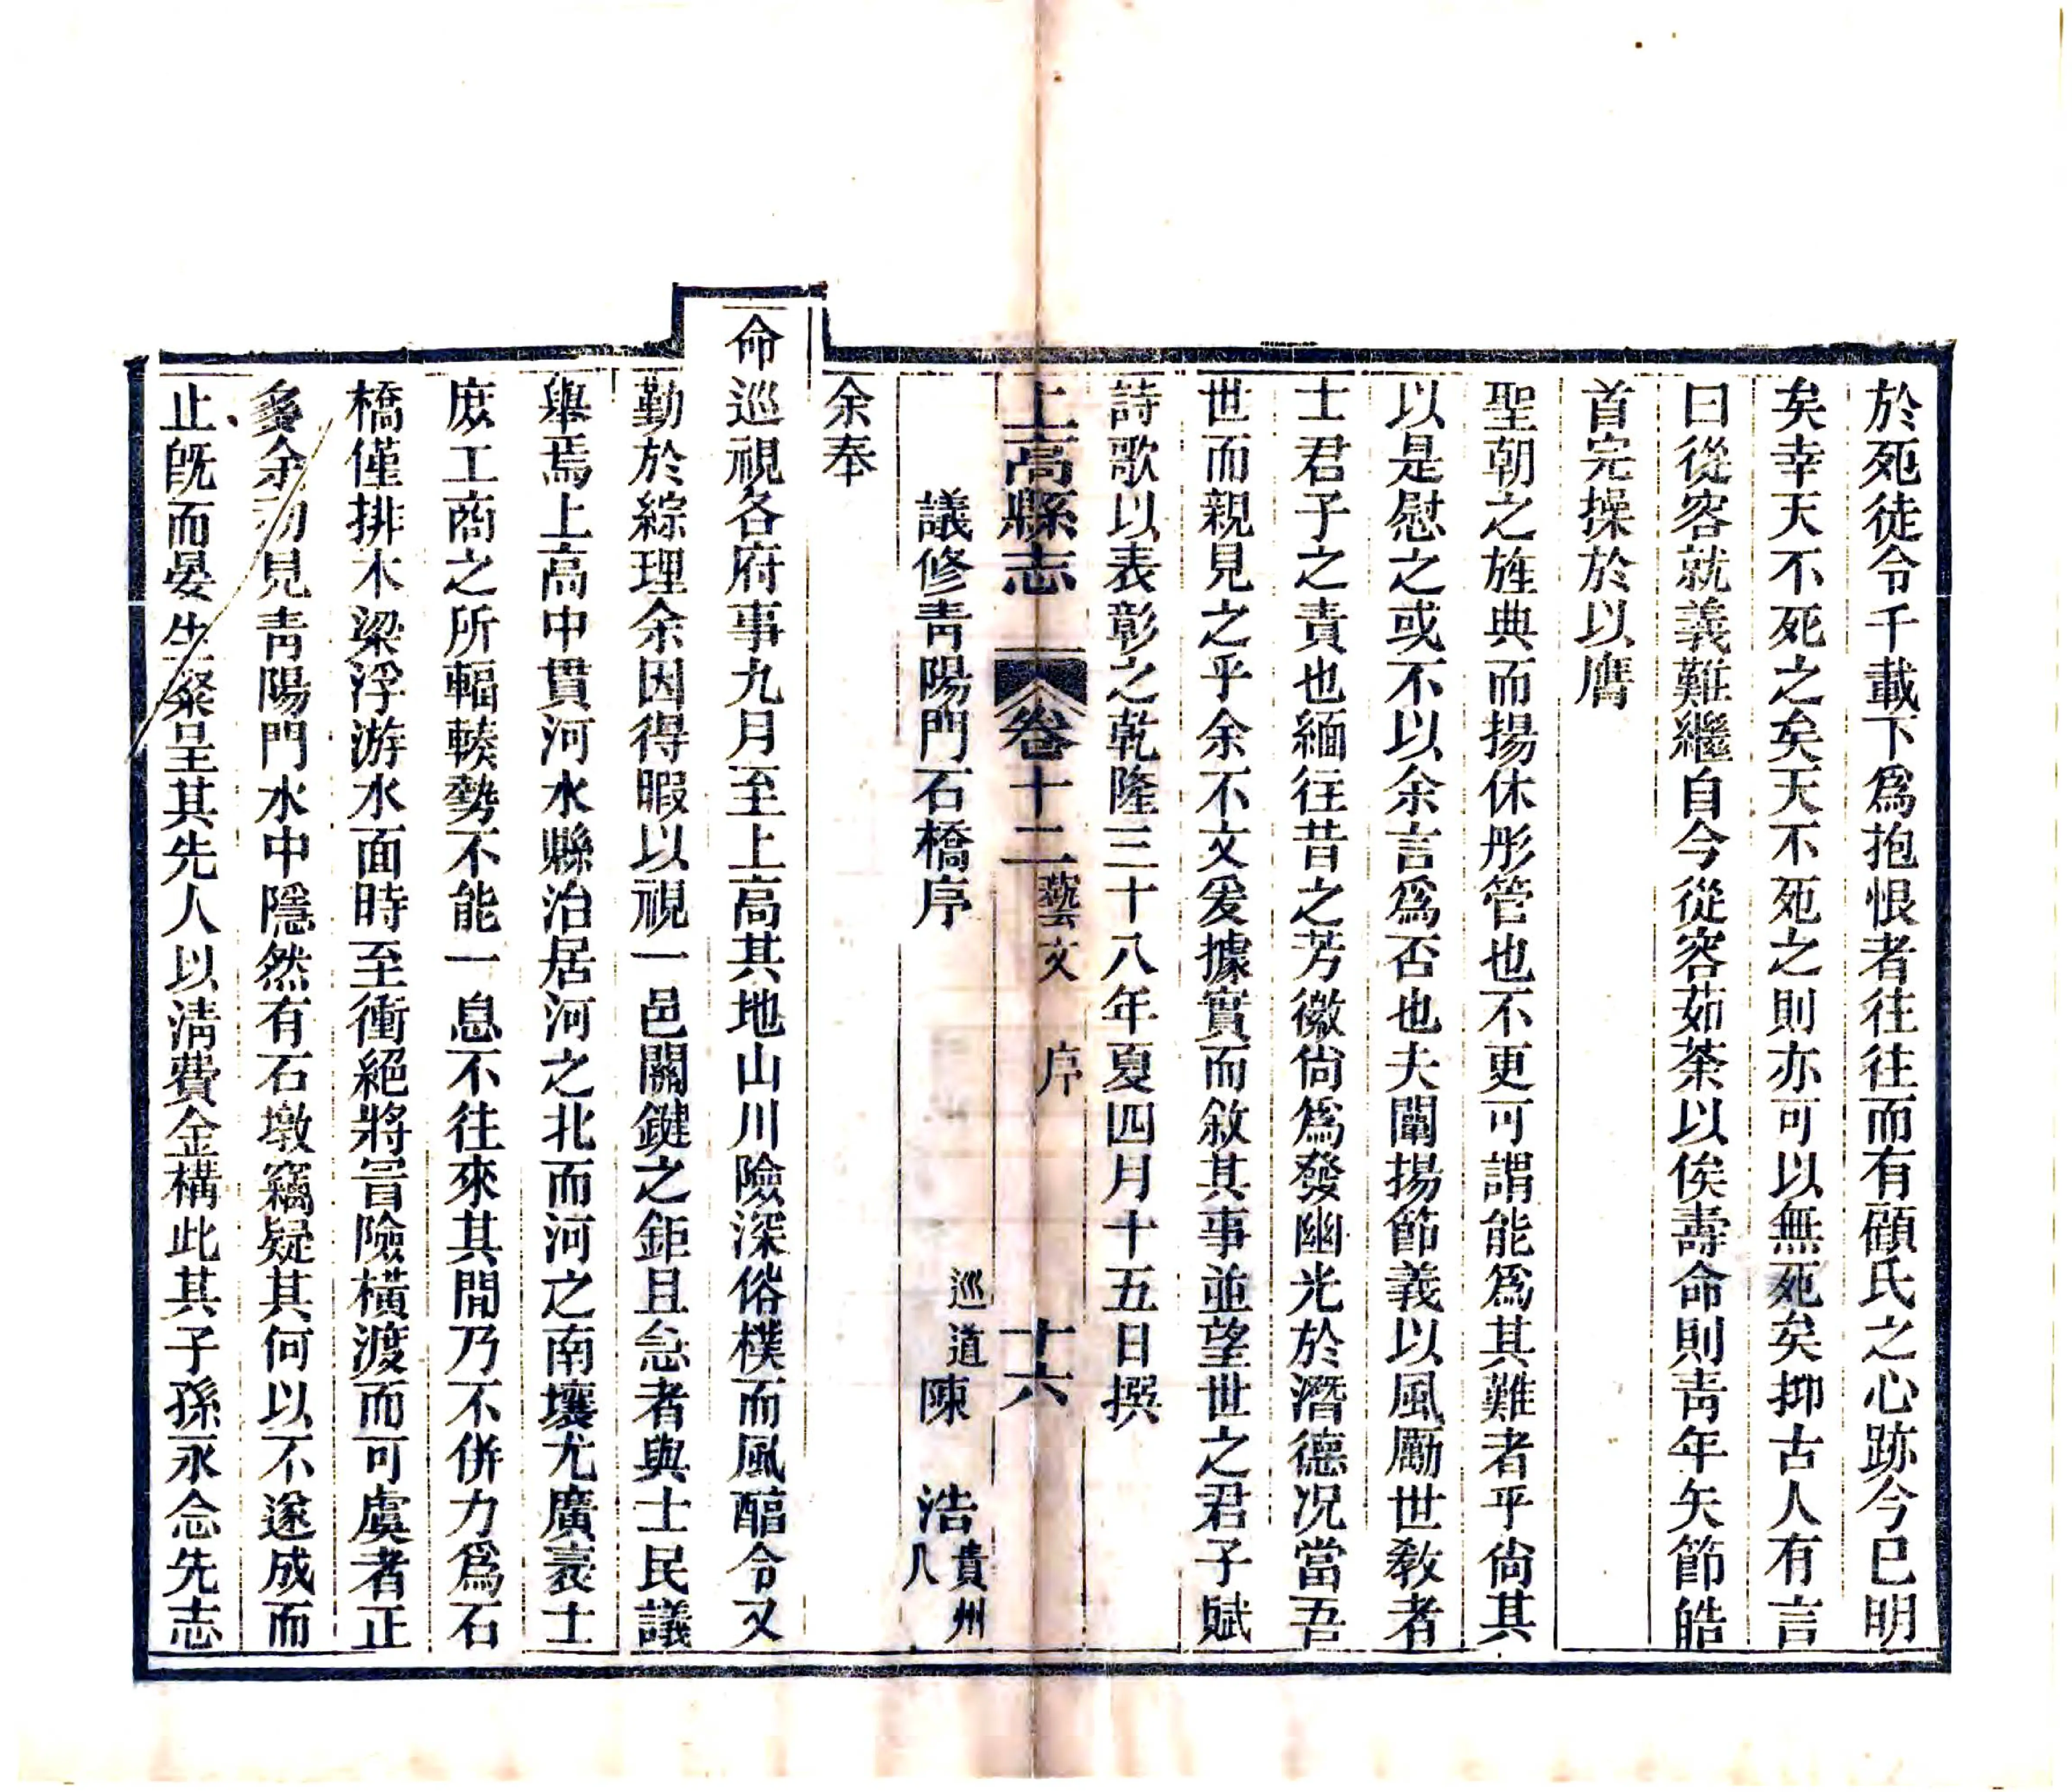 於死徒令千載下爲抱恨者往往而有顧氏之心跡今已明
矣幸天不死之矣天不死之則亦可以無死矣抑古人有言
曰從容就義難繼自今從容茹荼以俟壽命則青年矢節皓
首完操於以膺
聖朝之旌典而揚休彤管也不更可謂能爲其難者乎尙其
以是慰之或不以余言爲否也夫闡揚節義以風勵世敎者
士君子之責也緬往昔之芳徽尙爲發幽光於潛德况當吾
世而親見之乎余不文爰據實而敘其事並望世之君子賦
詩歌以表彰之乾隆三十八年夏四月十五日撰
上高縣志 卷十二 藝文 序 十六
議修青陽門石橋序 巡道陳 浩 貴州人
余奉
命巡視各府事九月至上高其地山川險深俗樸而風醕令又
勤於綜理余因得暇以視一邑關鍵之鉅且急者與士民議
舉焉上高中貫河水縣治居河之北而河之南壤尤廣袤士
庶工商之所輻輳勢不能一息不往來其間乃不倂力爲石
橋僅排木梁浮游水面時至衝絕將冒險橫渡而可虞者正
多余初見青陽門水中隱然有石墩竊疑其何以不遂成而
止旣而晏生粲呈其先人以淸費金構此其子孫永念先志